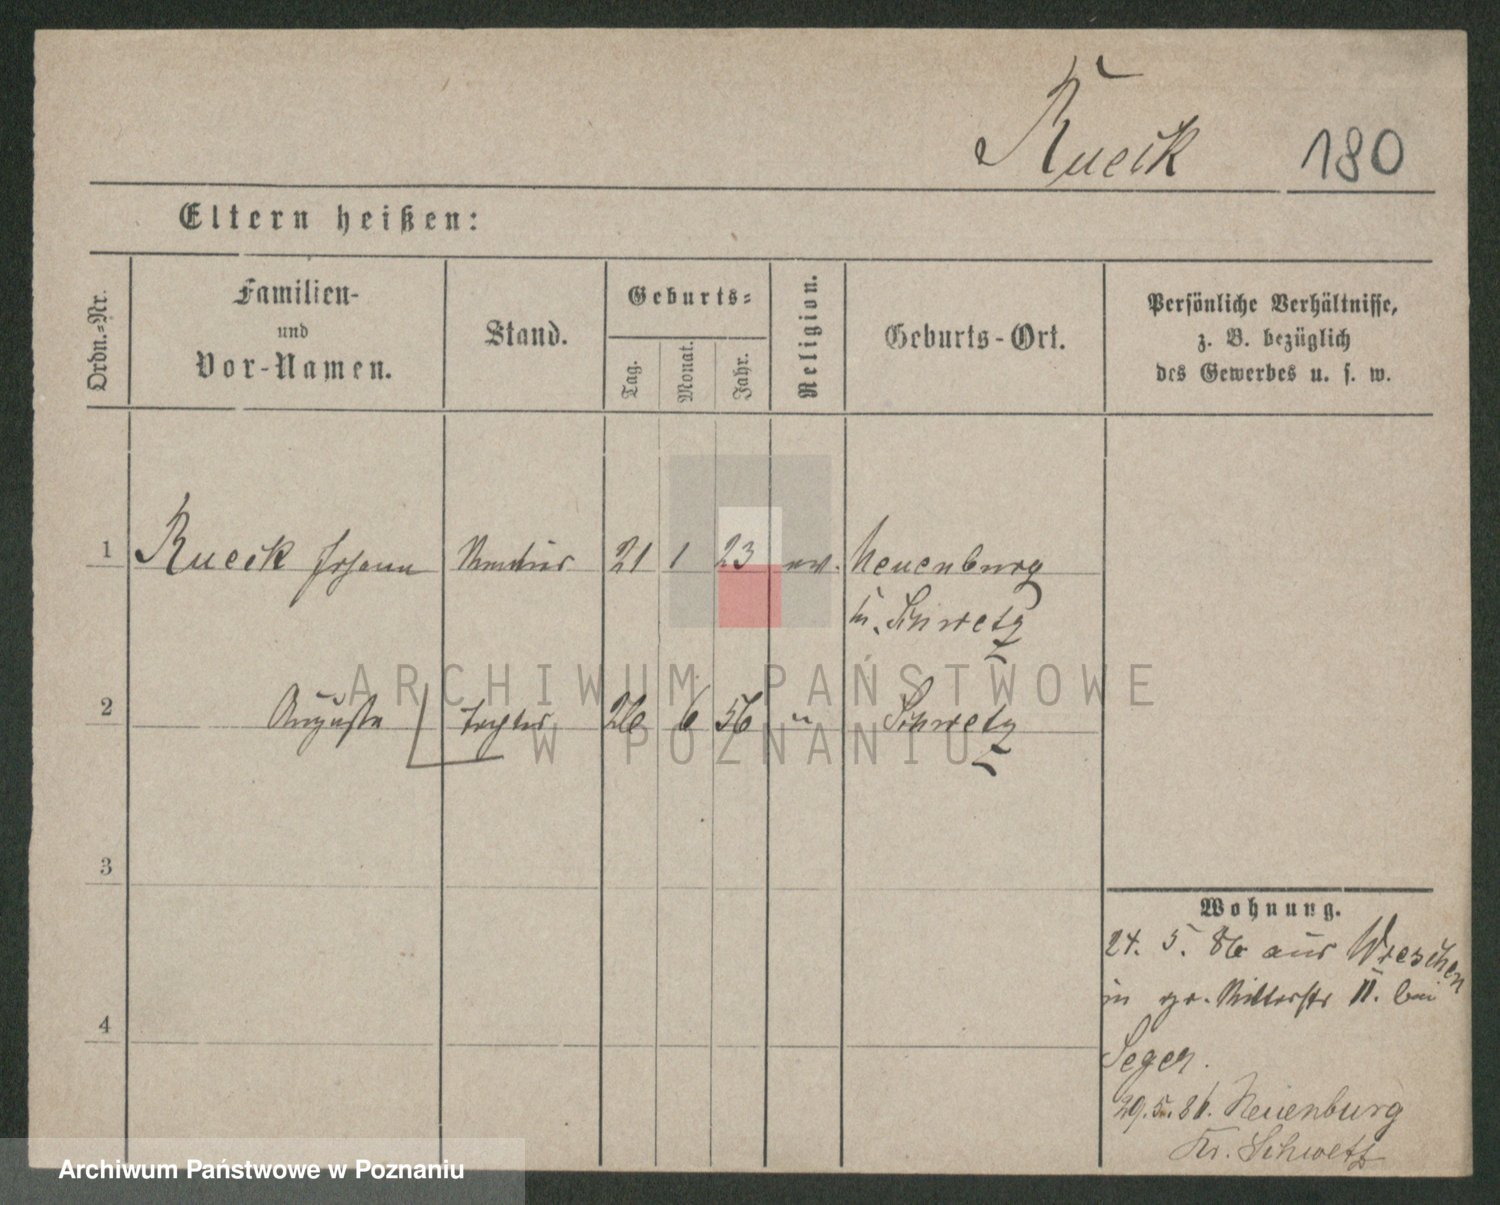 Rueck 180
Eltern heißen:
Ordn.-Nr.
Familien-
und
Vor-Namen.
Stand.
Geburts-
Tag.
Monat.
Jahr.
Religion.
Geburts-Ort.
Persönliche Verhältnisse,
z. B. bezüglich
des Gewerbes u. s. w.
1 Rueck Johann Rentier 21 1 23 ev. Neuenburg
Kr. Schwetz
2 Auguste Tochter 26 6 56 " Schwetz
3
4
Wohnung.
24. 5. 86 aus Wreschen
in gr. Ritterstr 11. bei
Seger.
29. 5. 86. Neuenburg
Kr. Schwetz
ARCHIWUM PAŃSTWOWE
W POZNANIU
Archiwum Państwowe w Poznaniu